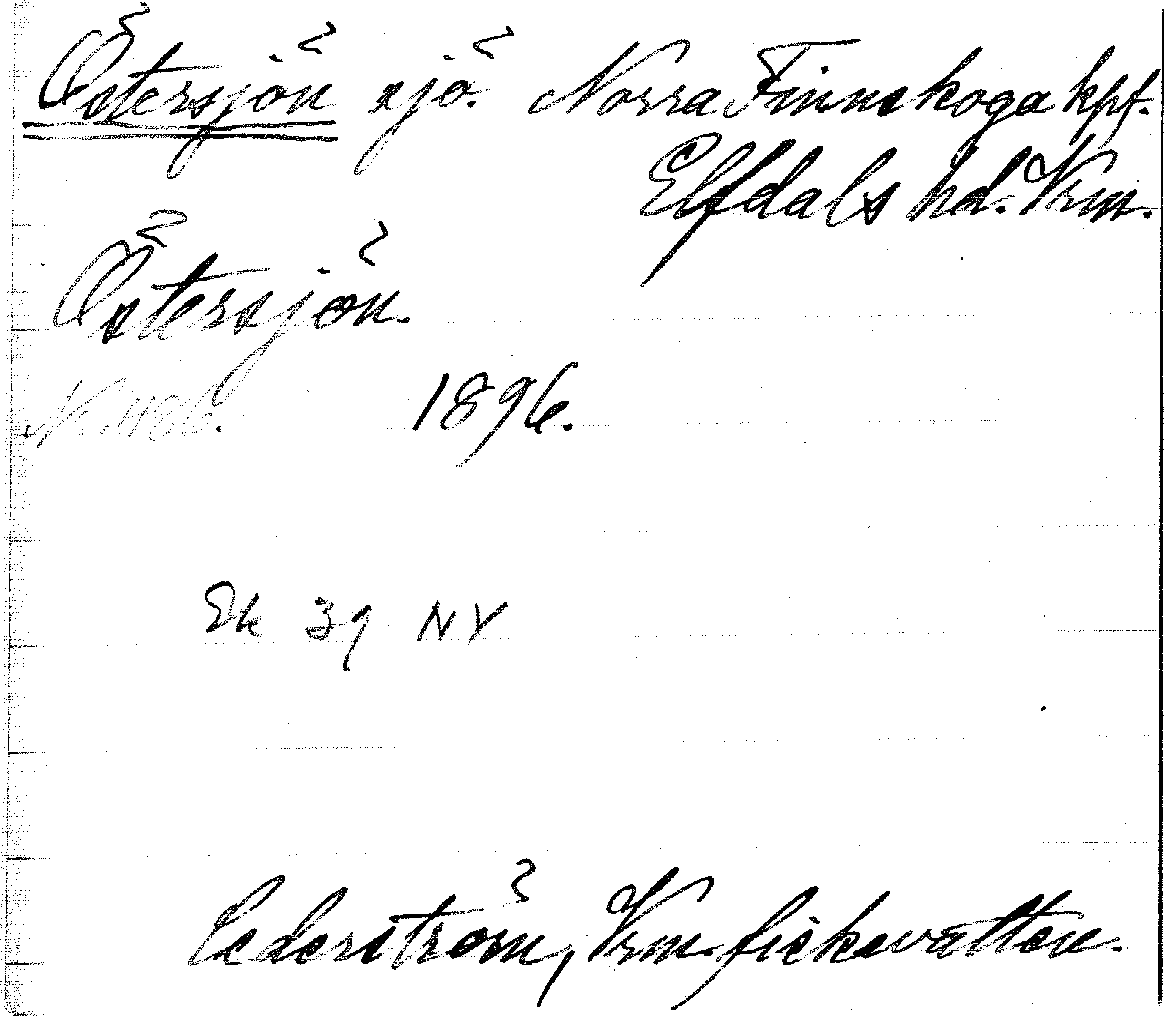 Östersjön sjö. Norra Finnskoga kpf.
Elfdals hd. Vrm.
Östersjön.
1896.
Ek 39 NV
Cederström, Vrm. fiskevatten.